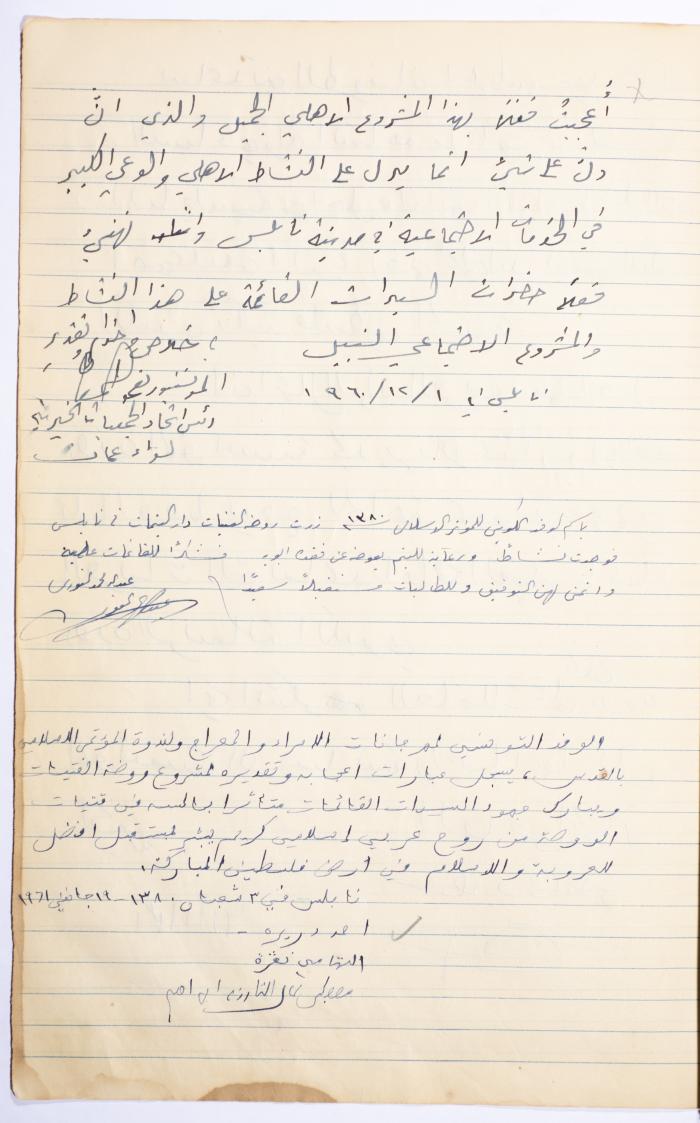 أُعجبتُ فعلاً بهذا المشروع الاهلي الجميل والذي انْ
دلّ على شيء انما يدل على النشاط الاهلي والوعي الكبير
في الخدمات الاجتماعية في مدينة نابلس وانني نهنيء
فعلاً حضرات السيدات القائمة على هذا النشاط
والمشروع الاجتماعي النبيل
باخلاص واحترام وتقدير
نابلس في ١/١٢/١٩٦٠
رئيس اتحاد الجمعيات الخيرية
لواء عمان
باسم الوفد الكويتي للمؤتمر الاسلامي ١٣٨٠ زرت روضة الفتيات دار اليتيمات في نابلس
فوجدت نشاطاً ورعاية لليتيم يعوضه عن فقده ابويه فشكراً للقائمات عليه
واتمنى لهن التوفيق وللطالبات مستقبلاً سعيداً
الوفد التونسي لمهرجانات الاسراء والمعراج ولندوة المؤتمر الاسلامي
بالقدس، يسجل عبارات اعجابه وتقديره لمشروع روضة الفتيات
ويبارك جهود السيدات القائمات متأثرا بما لمسه في فتيات
الروضة من روح عربي اسلامي كريم يبشر بمستقبل افضل
للعروبة والاسلام في أرض فلسطين المباركة.
نابلس في ٣ شعبان ١٣٨٠ - ١٩ جانفي ١٩٦١
احمد دريره -
التهامي نقرة